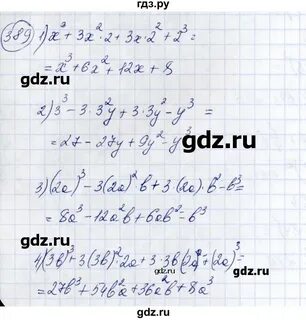 гдз.ру
389 1) x³ + 3x²·2 + 3x·2² + 2³ =
gdz.ru
= x³ + 6x² + 12x + 8
gdz.ru
2) 3³ - 3·3²y + 3·3y² - y³ =
gdz.ru
= 27 - 27y + 9y² - y³
3) (2a)³ - 3(2a)²b + 3(2a)·b² - b³ =
gdz.ru
= 8a³ - 12a²b + 6ab² - b³
gdz.ru
4) (3b)³ + 3(3b)²·2a + 3·3b(2a)² + (2a)³ =
gdz.ru
= 27b³ + 54b²a + 36a²b + 8a³
gdz.ru